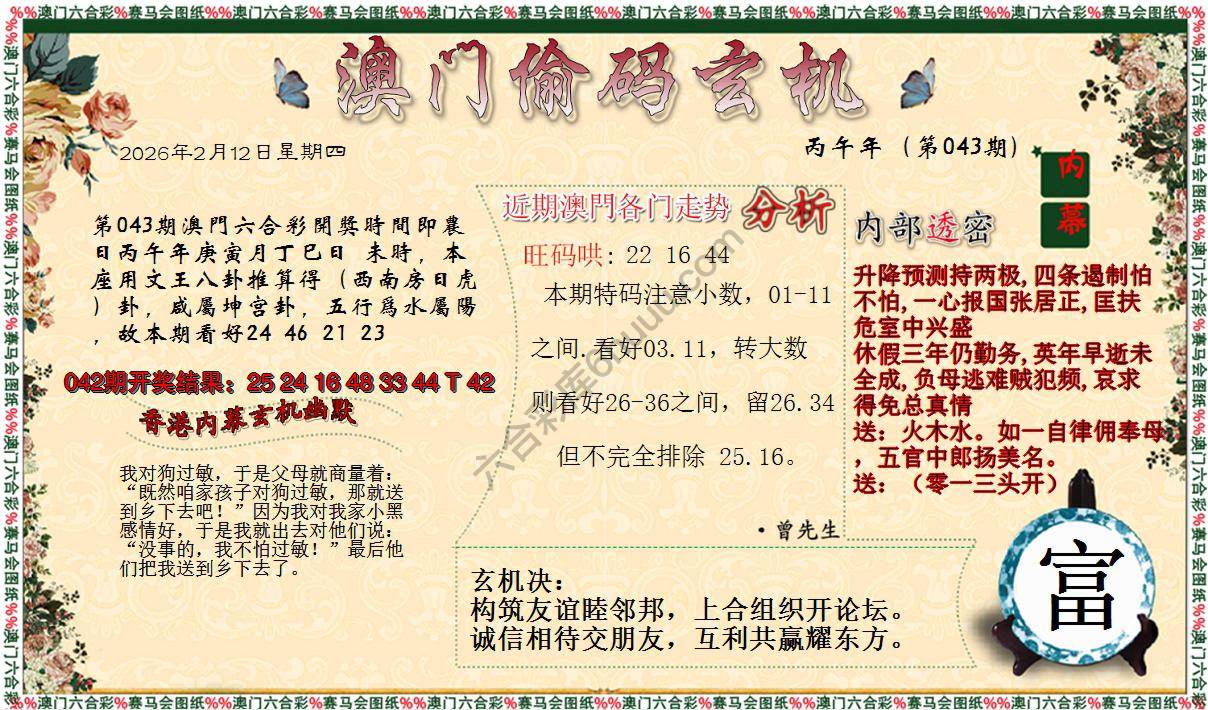 %%澳门六合彩%赛马会图纸%%澳门六合彩%赛马会图纸%%澳门六合彩%赛马会图纸%%澳门六合彩%赛马会图纸%%澳门六合彩%赛马会图纸%%澳门六合彩%赛马会图纸%%
澳门偷码玄机
2026年2月12日星期四
丙午年（第043期）
内
幕
第043期澳門六合彩開獎時間即農
日丙午年庚寅月丁巳日 未時，本
座用文王八卦推算得（西南房日虎
）卦，咸屬坤宫卦，五行爲水屬陽
，故本期看好24 46 21 23
042期开奖结果：25 24 16 48 33 44 T 42
香港内幕玄机幽默
我对狗过敏，于是父母就商量着：
“既然咱家孩子对狗过敏，那就送
到乡下去吧！”因为我对我家小黑
感情好，于是我就出去对他们说：
“没事的，我不怕过敏！”最后他
们把我送到乡下去了。
近期澳門各门走势 分析
旺码哄: 22 16 44
本期特码注意小数，01-11
之间.看好03.11，转大数
则看好26-36之间，留26.34
但不完全排除 25.16。
·曾先生
内部透密
升降预测持两极,四条遏制怕
不怕,一心报国张居正,匡扶
危室中兴盛
休假三年仍勤务,英年早逝未
全成,负母逃难贼犯频,哀求
得免总真情
送：火木水。如一自律佣奉母
，五官中郎扬美名。
送：（零一三头开）
玄机决：
构筑友谊睦邻邦，上合组织开论坛。
诚信相待交朋友，互利共赢耀东方。
富